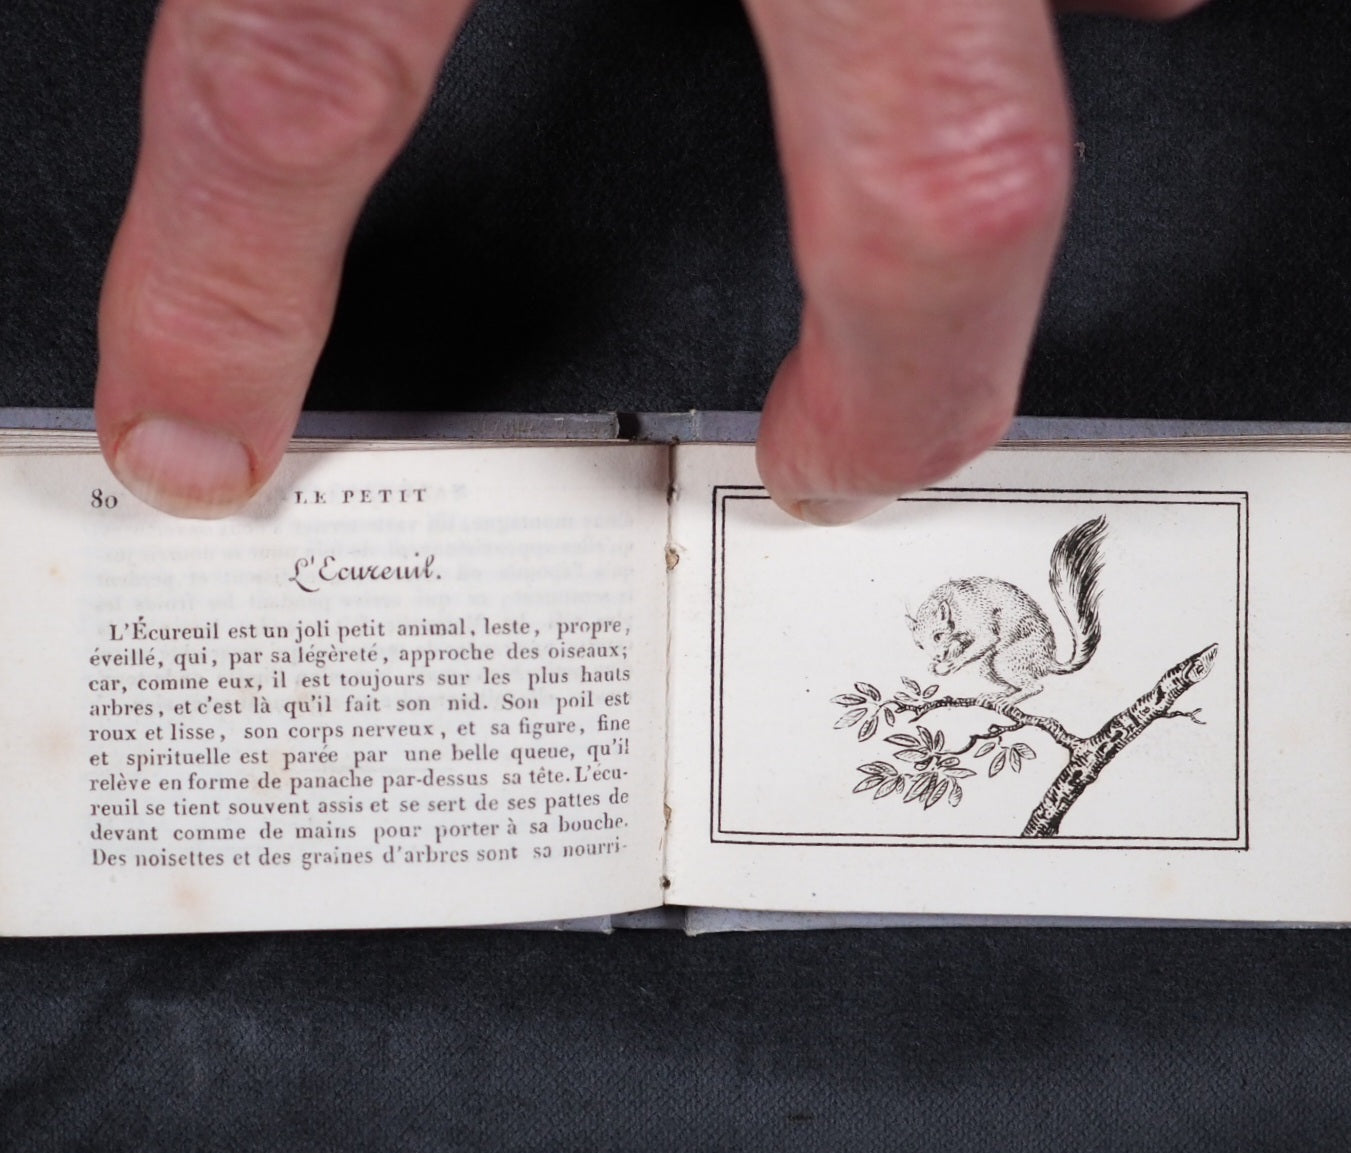 80
LE PETIT
L'Ecureuil.
L'Écureuil est un joli petit animal, leste, propre,
éveillé, qui, par sa légèreté, approche des oiseaux;
car, comme eux, il est toujours sur les plus hauts
arbres, et c'est là qu'il fait son nid. Son poil est
roux et lisse, son corps nerveux, et sa figure, fine
et spirituelle est parée par une belle queue, qu'il
relève en forme de panache par-dessus sa tête. L'écu-
reuil se tient souvent assis et se sert de ses pattes de
devant comme de mains pour porter à sa bouche.
Des noisettes et des graines d'arbres sont sa nourri-